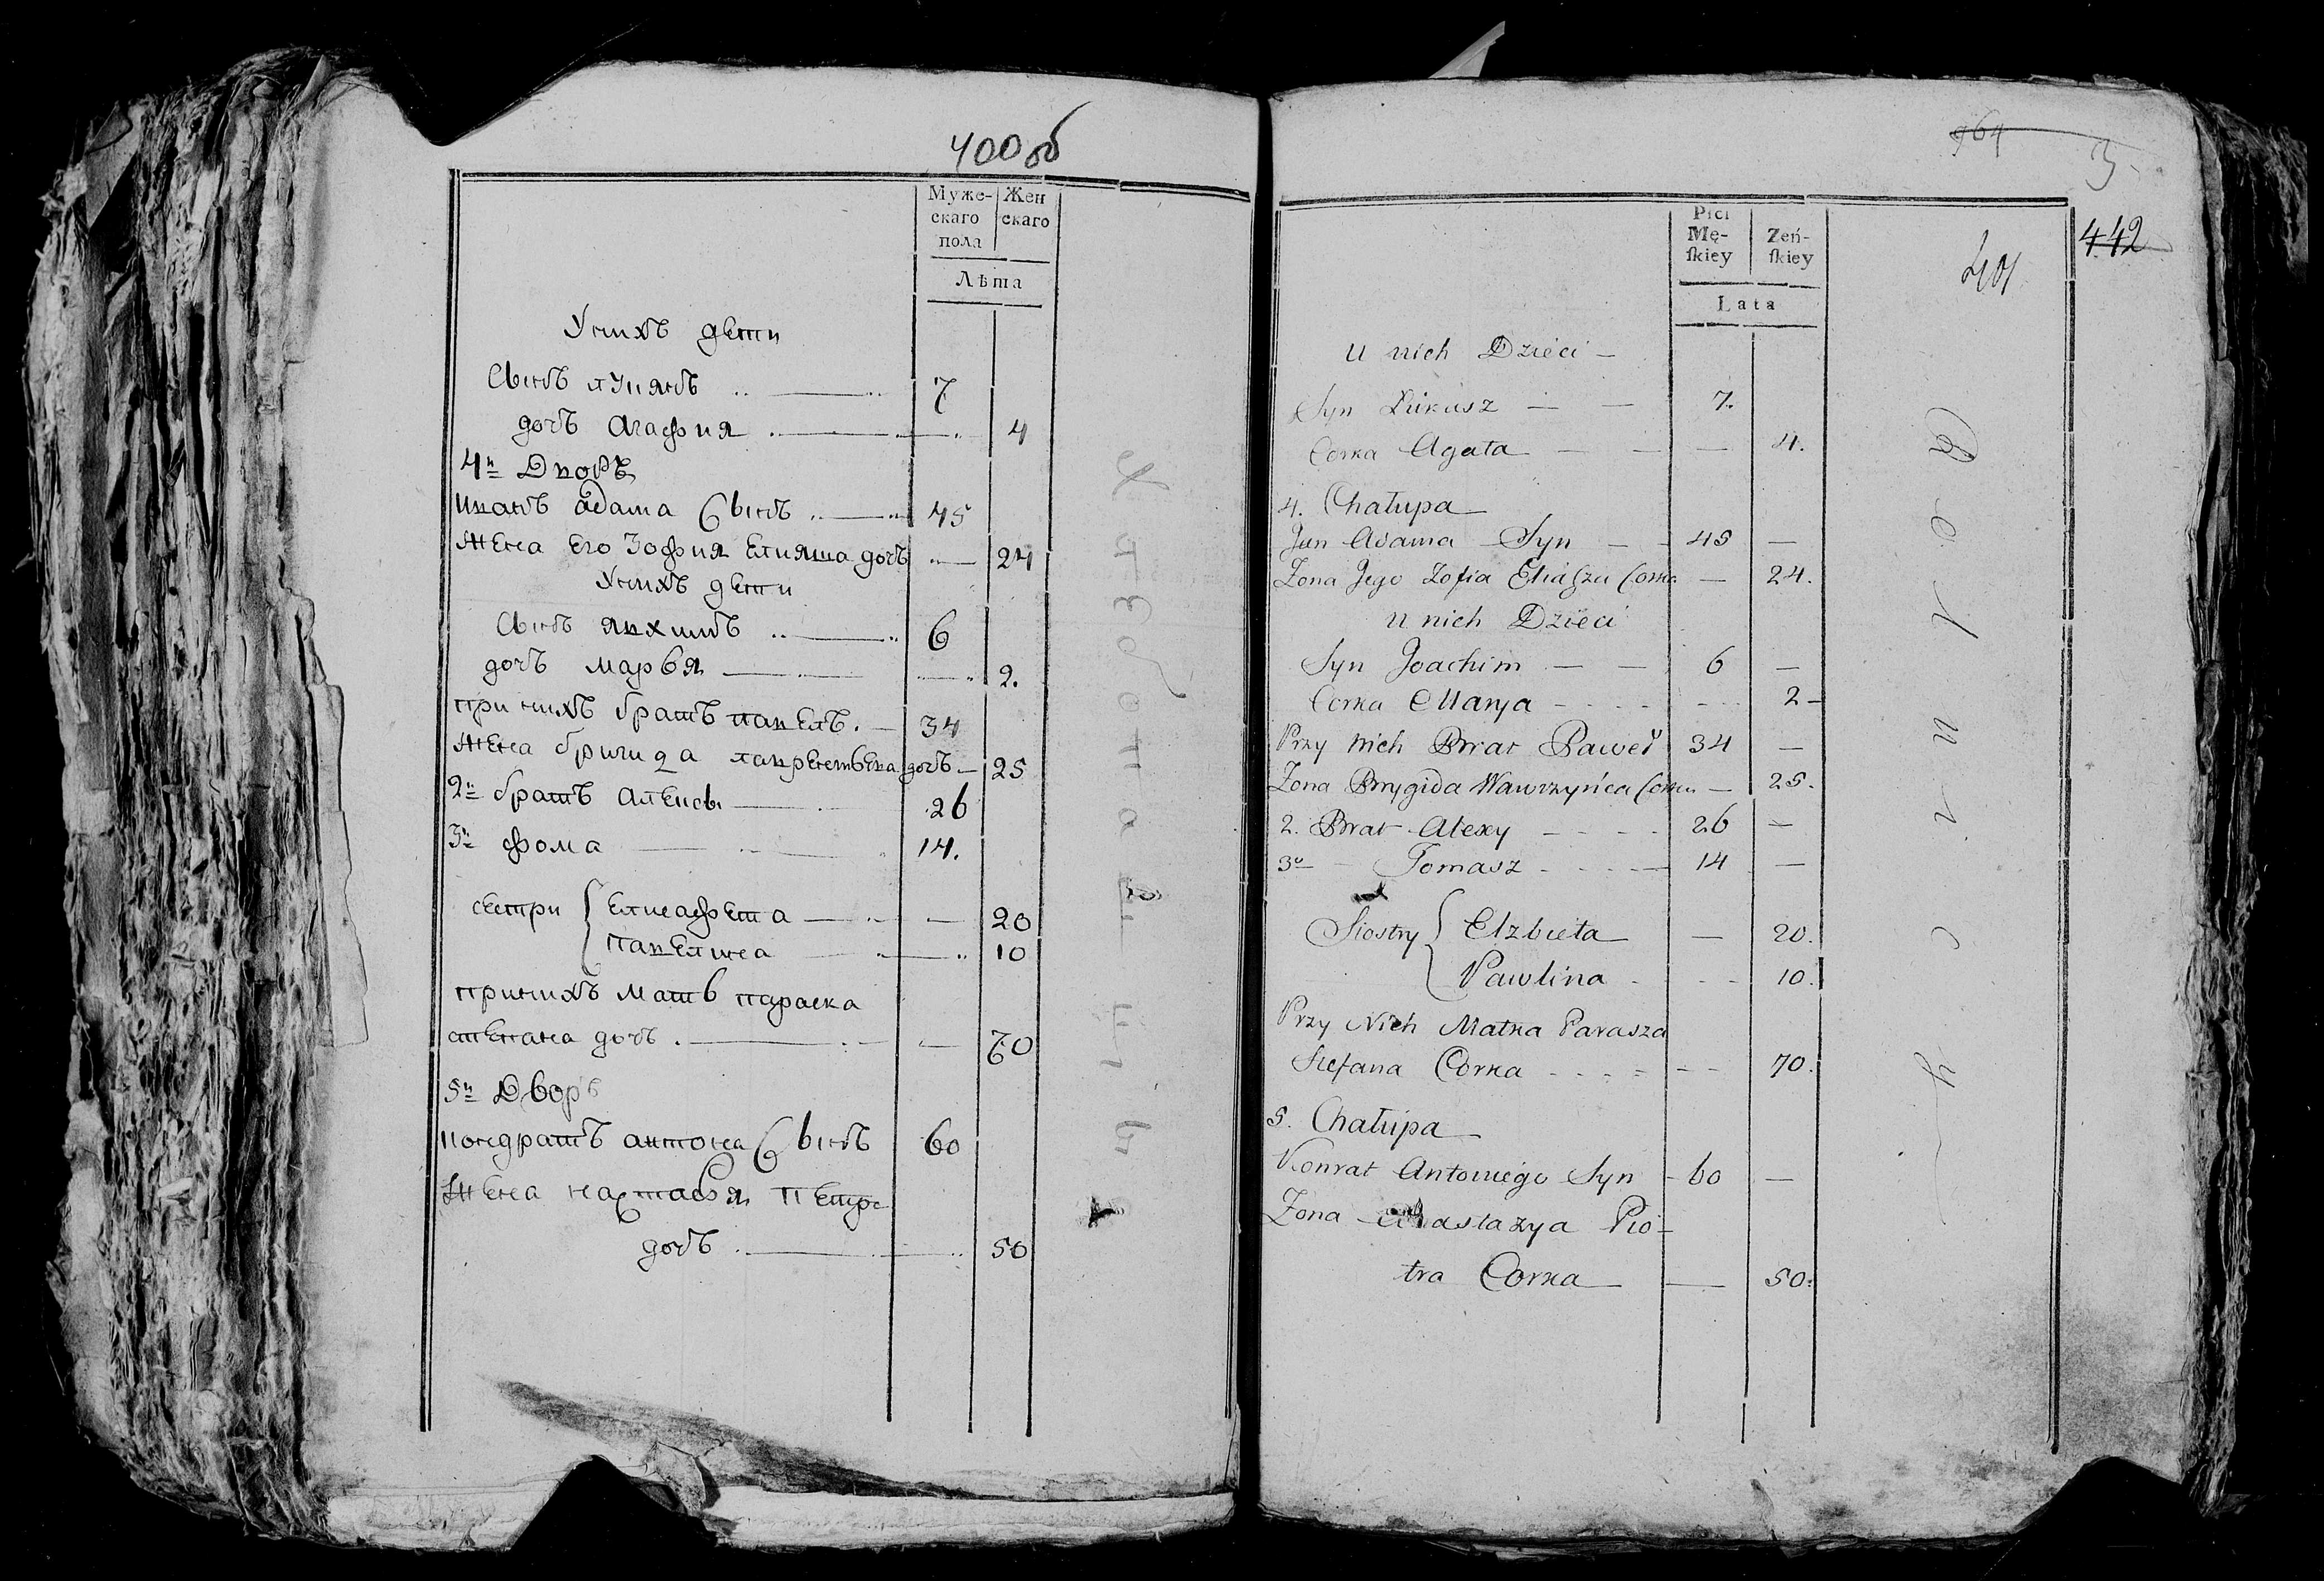 400 об
Муже- Жен
скаго скаго
пола
Лѣта
У нихъ дети
Сынъ лукянъ 7
дочъ Агафия 4
4й Дворъ
иванъ адама Сынъ 45
Жена Его Зофия Елияша дочъ 24
У нихъ дети
Сынъ якхимъ 6
дочъ марья 2.
при нихъ братъ павелъ. 34
Жена бригида лаврентьева дочъ 25
2й братъ алексы 26
3й фома 14.
сестри Елисафета 20
павелина 10
при нихъ мать параска
степана дочъ. 70
5й Дворъ
кондратъ антона Сынъ 60
Жена настасья петра
дочъ 50
964
3
442
401
Płci
Mę- Zeń-
ſkiey ſkiey
Lata
u nich Dzieci
Syn Łukasz 7.
Corka Agata 4.
4. Chałupa
Jan Adama Syn 45
Zona Jego Zofia Eliaszu Corka 24.
u nich Dzieci
Syn Joachim 6
Corka Marya 2
Przy nich Brat Paweł 34
Zona Brygida Wawrzyńca Corka 25.
2. Brat Alexy 26
3o Tomasz 14
Siostry Elzbieta 20.
Pawlina 10.
Przy Nich Matka Parasza
Stefana Corka 70.
5. Chałupa
Konrat Antoniego Syn 60
Zona Anastazya Pio-
tra Corka 50.